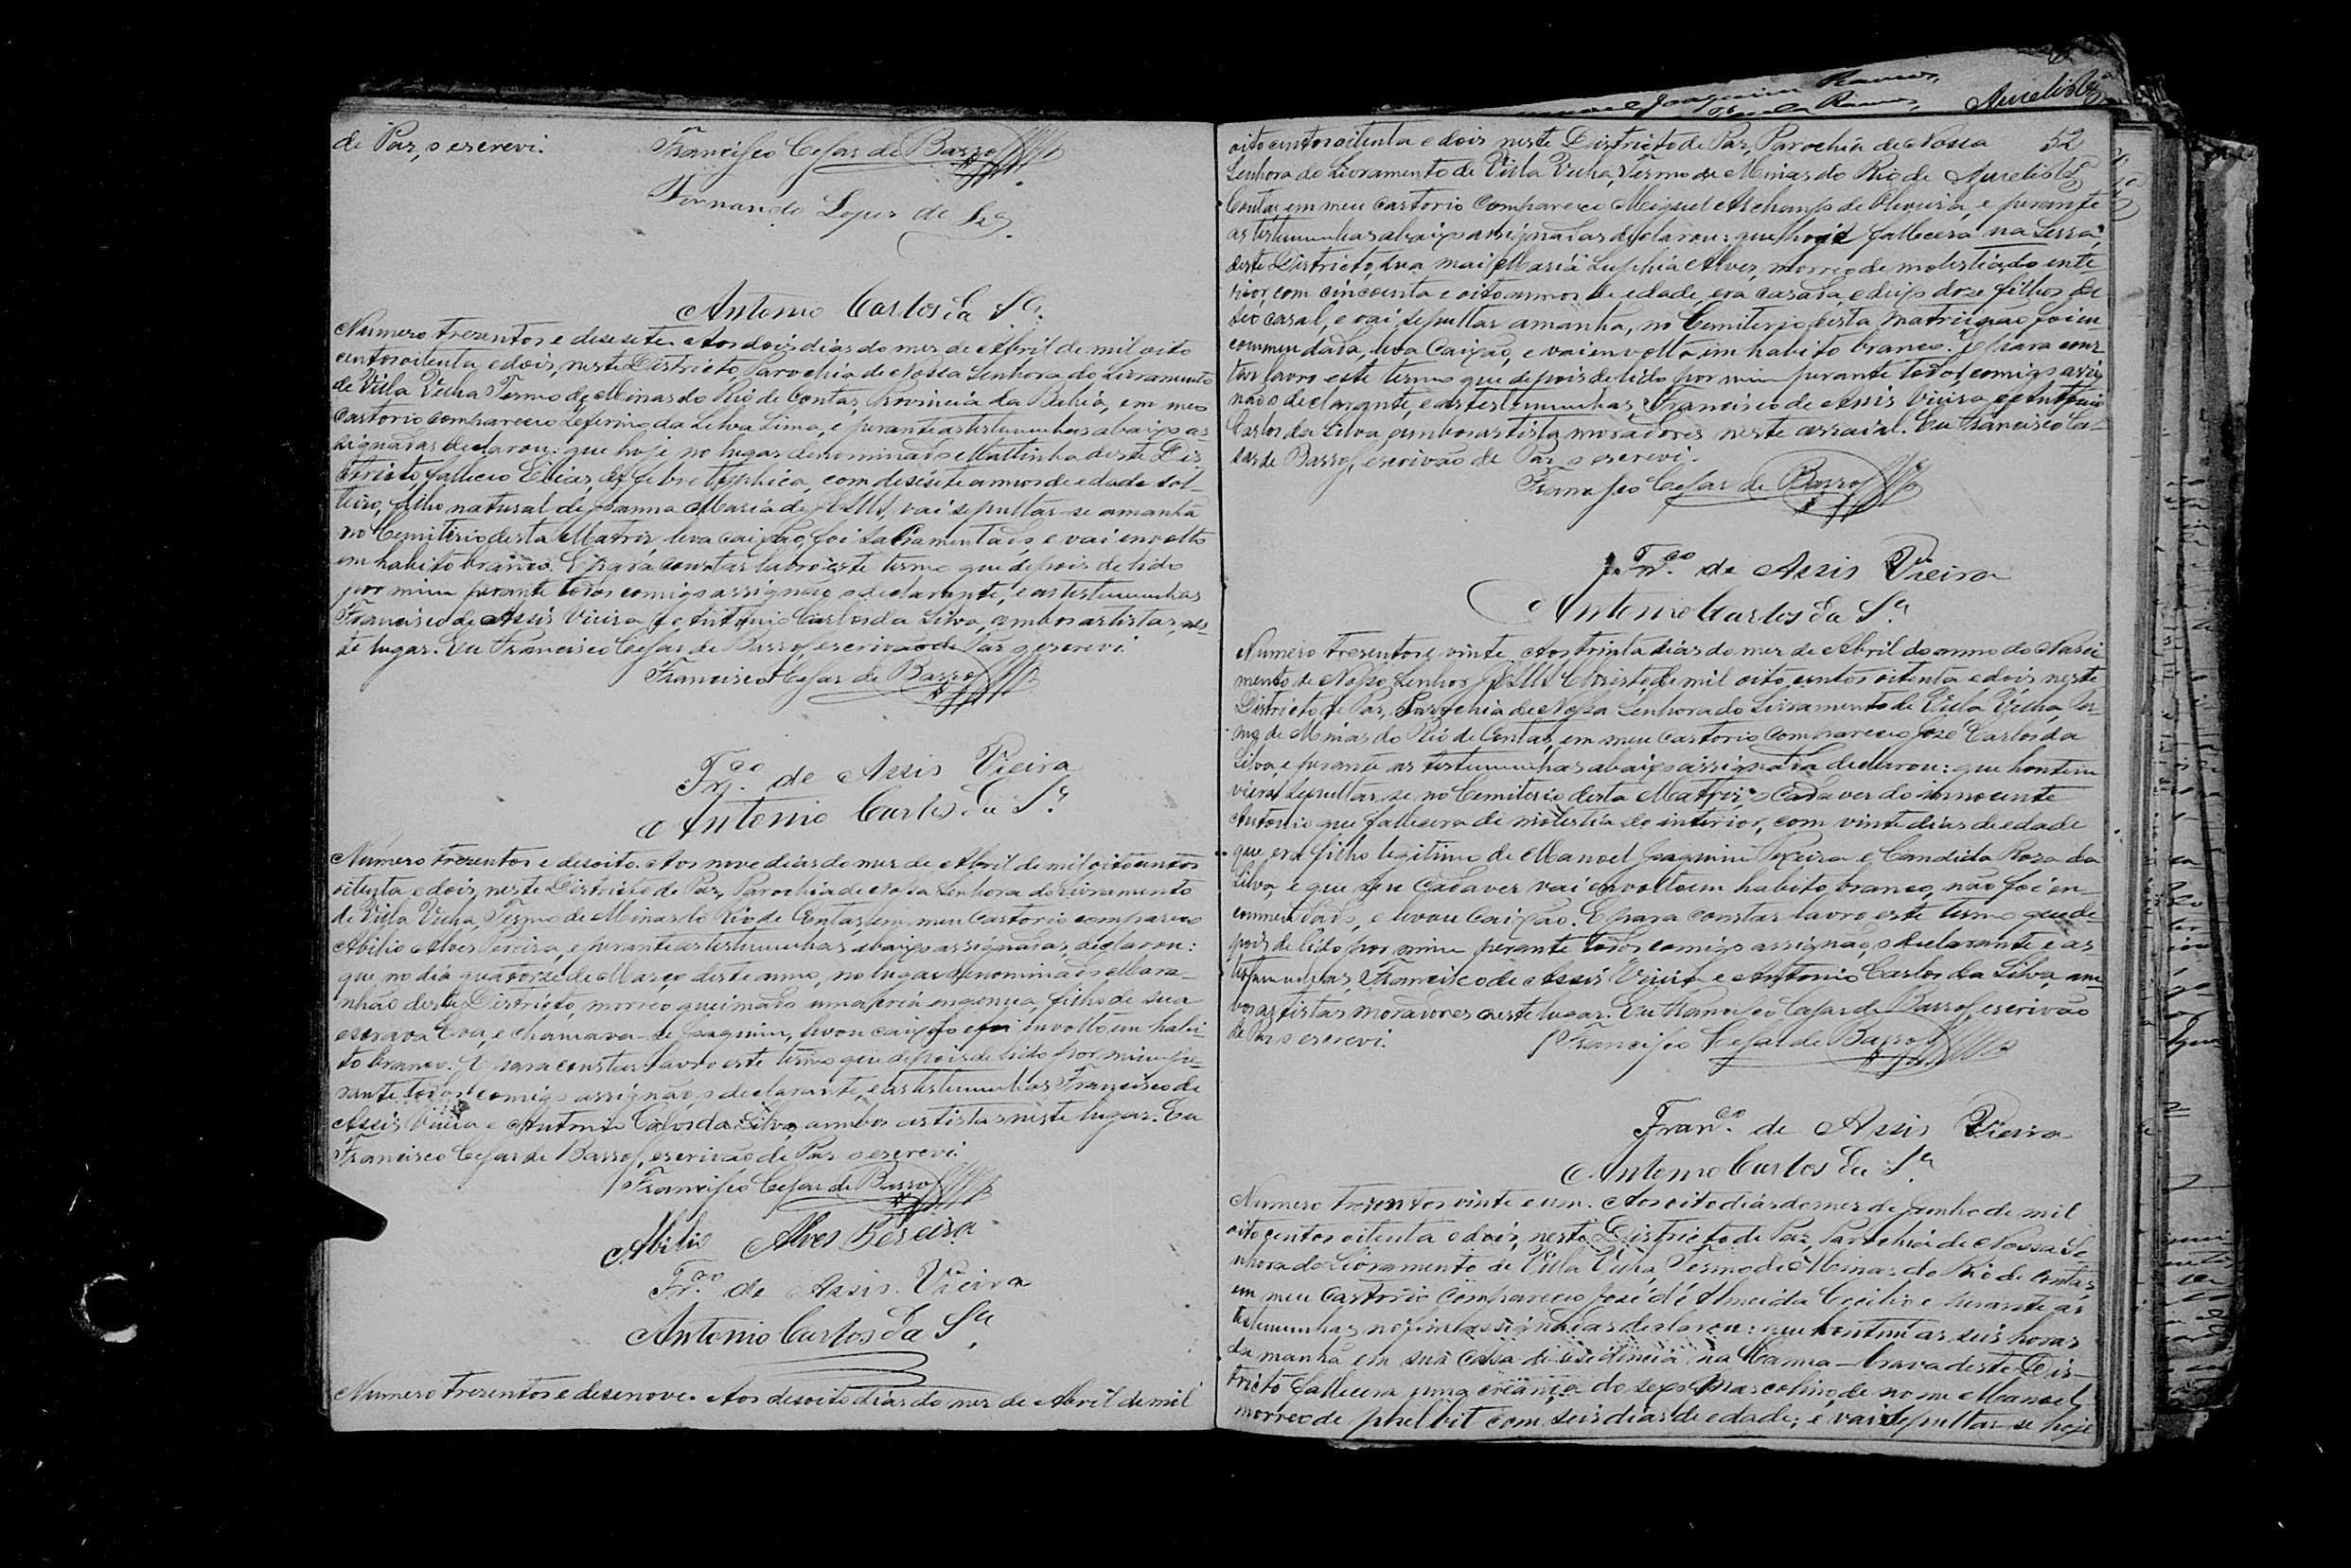 de Paz, o escrevi. Francisco Cesar de Barros
Fernando Lopes de Sza.
Antonio Carlos da Sa.
Numero trezentos e desesete. Aos dois dias do mez de Abril de mil oito
centos oitenta e dois, neste Districto, Parochia de Nossa Senhora do Livramento
de Villa Velha, Termo de Minas do Rio de Contas, Provincia da Bahia, em meo
Cartorio compareceo Zeferino da Silva Lima, e perante as testemunhas abaixo as-
signadas declarou: que hoje no lugar denominado Mattinha deste Dis-
tricto, falleceo Elias, de febre typhica, com desesete annos de edade, sol-
teiro, filho natural de Joanna Maria de Jesus, vai sepultar-se amanhã
no Cemiterio desta Matriz, leva caixão, foi sacramentado, e vai envolto
em habito branco. E para constar lavro este termo que depois de lido
por mim perante todos comigo assignão, o declarante, e as testemunhas
Francisco de Assis Vieira e Antonio Carlos da Silva, ambos artistas, nes-
te lugar. Eu Francisco Cesar de Barros, escrivão de Paz o escrevi
Francisco Cesar de Barros
Frco. de Assis Vieira
Antonio Carlos da Sa
Numero trezentos e desoito. Aos nove dias do mez de Abril de mil oito centos
oitenta e dois, neste Districto de Paz, Parochia de Nossa Senhora do Livramento
de Villa Velha, Termo de Minas do Rio de Contas, em meu Cartorio compareceo
Abilio Alves Pereira, e perante as testemunhas abaixo assignadas, declarou:
que no dia quatorze de Março deste anno, no lugar denominado Mara-
nhão deste Districto, morreo queimado uma cria ingenua, filho de sua
escrava Eva, e chamava-se Joaquim, levou caixão e foi involto em habi-
to branco. E para constar lavro este termo que depois de lido por mim pe-
rante todos comigo assignão, o declarante, e as testemunhas Francisco de
Assis Vieira e Antonio Carlos da Silva, ambos artistas neste lugar. Eu
Francisco Cesar de Barros, escrivão de Paz o escrevi.
Francisco Cesar de Barros
Abilio Alves Pereira
Frco. de Assis Vieira
Antonio Carlos da Sa.
Numero trezentos e desenove. Aos desoito dias do mez de Abril de mil
Joaquim Ramos
Aurelio
oito centos oitenta e dois neste Districto de Paz, Parochia de Nossa 52
Senhora do Livramento de Villa Velha, Termo de Minas do Rio de Aurelio
Contas, em meu cartorio compareceo Miguel Archanjo de Oliveira, e perante
as testemunhas abaixo assignadas declarou: que hoje fallecera na Serra,
deste Districto, sua mai Maria Sophia Alves, morreo de molestia do inte-
rior, com cincoenta e oito annos de edade, era casada, e deixo doze filhos de
seo casal, e vai sepultar amanhã, no Cemiterio desta Matriz, não foi en-
commendada, leva Caixão, e vai envolta em habito branco. E para cons-
tar lavro este termo que depois de lido por mim perante todos comigo assig-
não o declarante, e as testemunhas Francisco de Assis Vieira e Antonio
Carlos da Silva, ambos artistas moradores neste arraial. Eu Francisco Ce-
sar de Barros, escrivão de Paz o escrevi.
Francisco Cesar de Barros
Frco. de Assis Vieira
Antonio Carlos da Sa
Numero trezentos vinte. Aos trinta dias do mez de Abril do anno do Nasci
mento de Nosso Senhor Jesus Christo de mil oito centos oitenta e dois neste
Districto de Paz, Parochia de Nossa Senhora do Livramento de Villa Velha, Ter-
mo de Minas do Rio de Contas, em meu cartorio compareceo José Carlos da
Silva, e perante as testemunhas abaixo assignada declarou: que hontem
viera sepultar-se no Cemiterio desta Matriz o Cadaver do innocente
Antonio que fallecera de molestia do interior, com vinte dias de edade
que era filho legitimo de Manoel Joaquim Teixeira e Candida Roza da
Silva, e que seu Cadaver vai envolto em habito branco, não foi en-
commendado, e levou Caixão. E para constar lavro este termo que de-
pois de lido por mim perante todos comigo assignão, o declarante e as
testemunhas, Francisco de Assis Vieira e Antonio Carlos da Silva, am-
bos artistas moradores neste lugar. Eu Francisco Cesar de Barros, escrivão
de Paz o escrevi. Francisco Cesar de Barros
Franco. de Assis Vieira
Antonio Carlos da Sa.
Numero trezentos vinte e um. Aos oito dias do mez de Junho de mil
oito centos oitenta e dois, neste Districto de Paz, Parochia de Nossa Se-
nhora do Livramento de Villa Velha, Termo de Minas do Rio de Contas,
em meu Cartorio compareceo José de Almeida Cecilio e perante as
testemunhas no fim assignadas declarou: que hontem as seis horas
da manhã em sua casa de residencia na Canna-brava deste Dis-
tricto, fallecera uma criança do sexo masculino de nome Manoel
morreo de com seis dias de edade; e vai sepultar se hoje